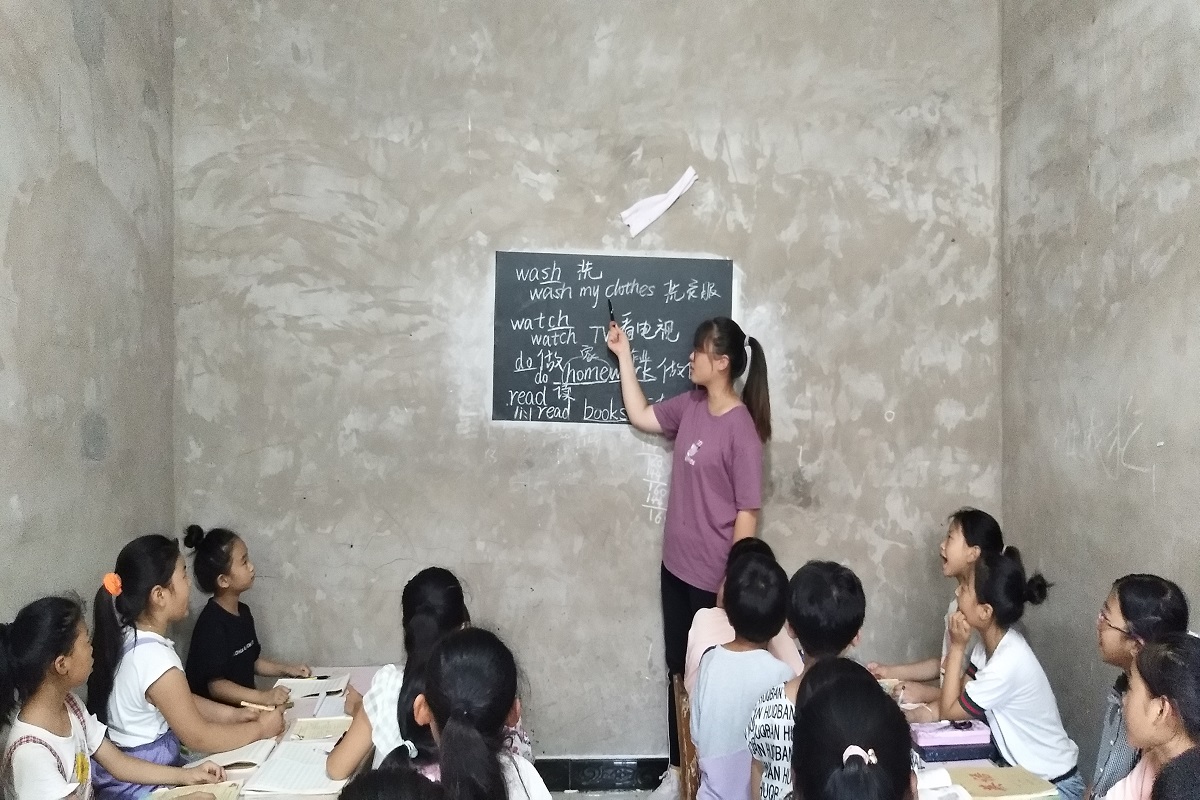 wash 洗
wash my clothes 洗衣服
watch
watch TV 看电视
do 做 家 作业
do homework 做
read 读
read books
16
HUOBAN
HUOBAN
HUOBAN